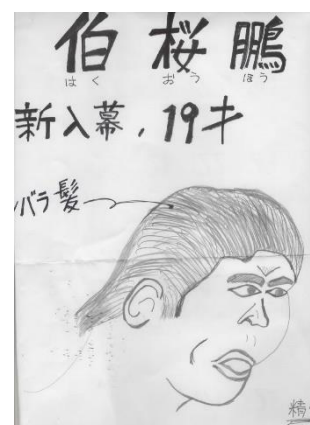 伯桜鵬
はくおうほう
新入幕,19才
バラ髪